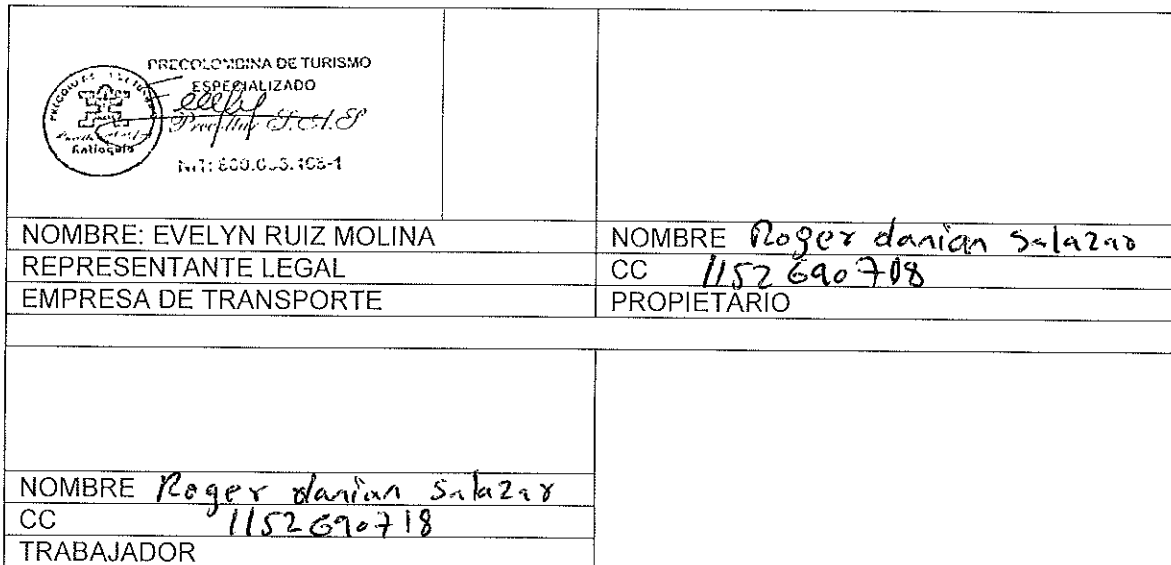 PRECOLOMBINA DE TURISMO
ESPECIALIZADO
S.A.S
Antioquia
NIT:
NOMBRE: EVELYN RUIZ MOLINA
REPRESENTANTE LEGAL
EMPRESA DE TRANSPORTE
NOMBRE Roger danian Salazar
CC 1152690708
PROPIETARIO
NOMBRE Roger danian Salazar
CC 1152690718
TRABAJADOR